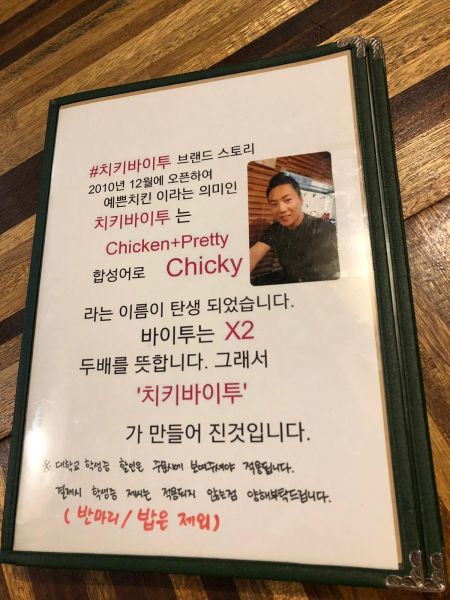 #치키바이투 브랜드 스토리
2010년 12월에 오픈하여
예쁜치킨 이라는 의미인
치키바이투 는
Chicken+Pretty
합성어로 Chicky
라는 이름이 탄생 되었습니다.
바이투는 X2
두배를 뜻합니다. 그래서
'치키바이투'
가 만들어 진것입니다.
※ 대학교 학생증 할인은 주문시에 보여주셔야 적용됩니다.
결제시 학생증 제시는 적용되지 않는점 양해부탁드립니다.
(반마리/밥은 제외)